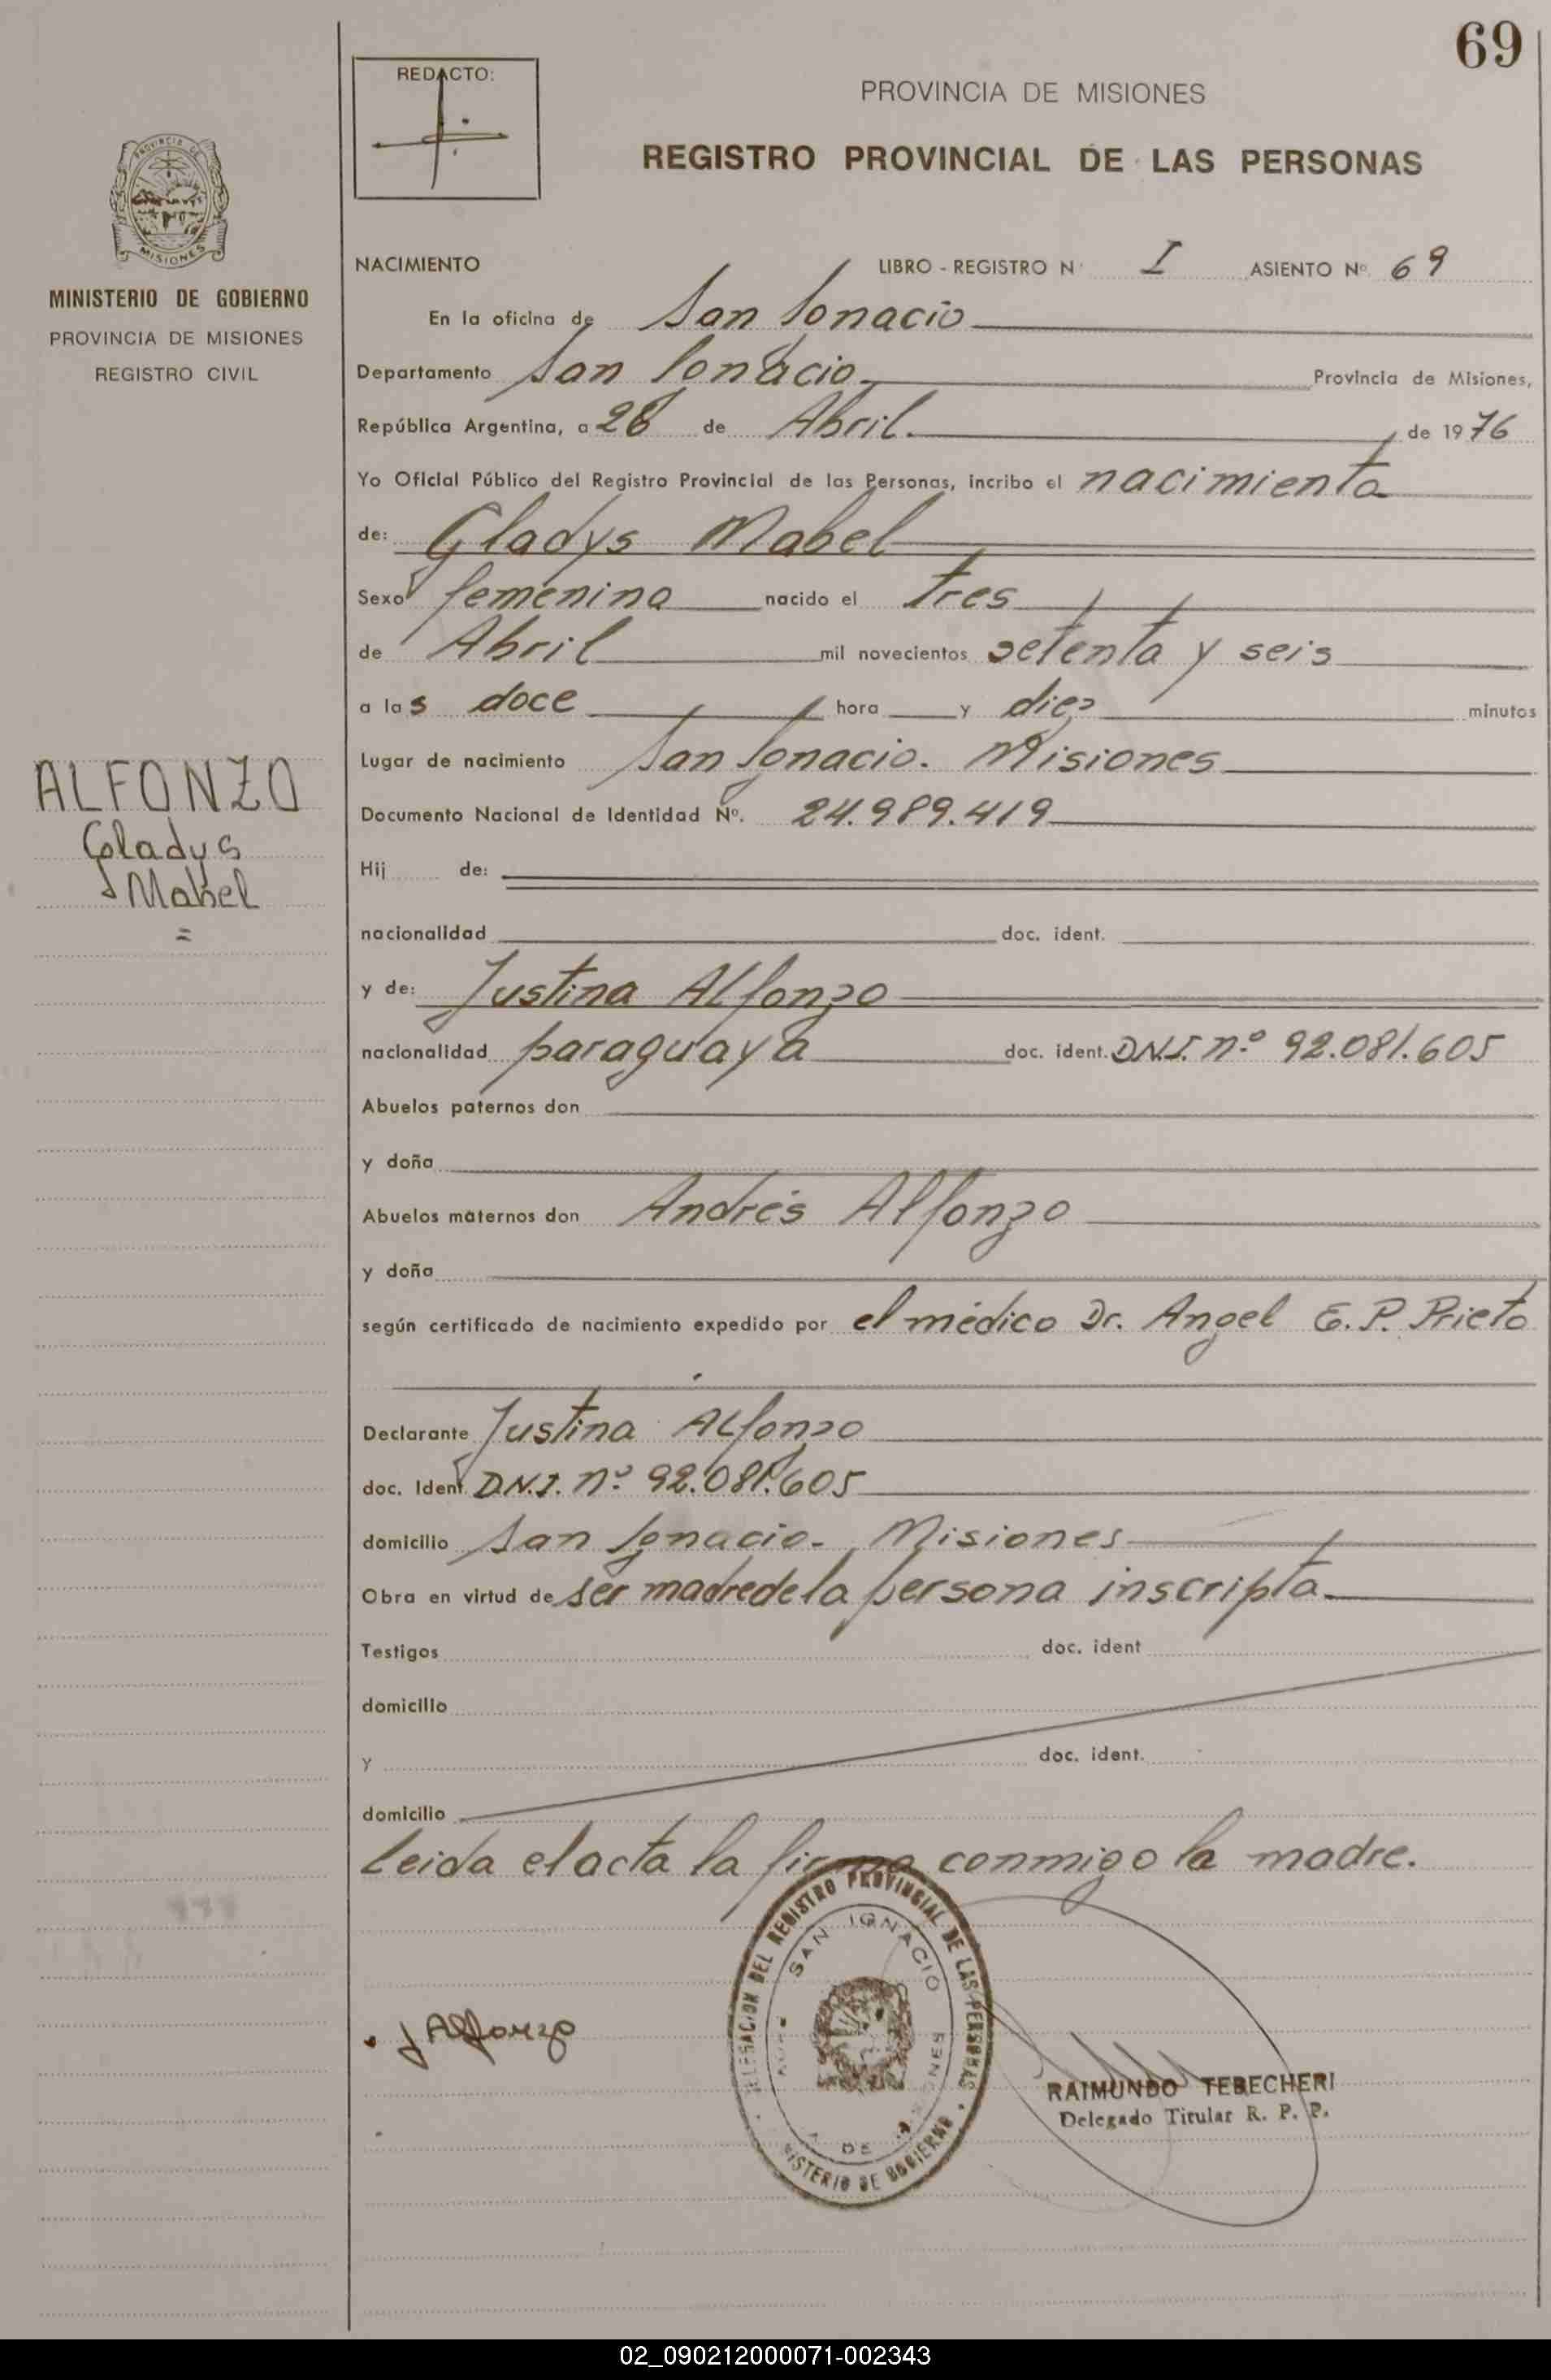 69
REDACTO:
PROVINCIA DE MISIONES
REGISTRO PROVINCIAL DE LAS PERSONAS
PROVINCIA DE
MISIONES
MINISTERIO DE GOBIERNO
PROVINCIA DE MISIONES
REGISTRO CIVIL
NACIMIENTO LIBRO - REGISTRO N° I ASIENTO Nº 69
En la oficina de San Ignacio
Departamento San Ignacio Provincia de Misiones,
República Argentina, a 28 de Abril. de 1976
Yo Oficial Público del Registro Provincial de las Personas, incribo el nacimiento
de: Gladys Mabel
Sexo femenino nacido el tres
de Abril mil novecientos setenta y seis
a las doce hora y diez minutos
Lugar de nacimiento San Ignacio. Misiones
Documento Nacional de Identidad Nº. 24.989.419
ALFONZO
Gladys
Mabel
=
Hij de:
nacionalidad doc. ident.
y de: Justina Alfonzo
nacionalidad paraguaya doc. ident. D.N.I. nº 92.081.605
Abuelos paternos don
y doña
Abuelos maternos don Andrés Alfonzo
y doña
según certificado de nacimiento expedido por el médico Dr. Angel E. P. Prieto
Declarante Justina Alfonzo
doc. Ident D.N.I. nº 92.081.605
domicilio San Ignacio. Misiones
Obra en virtud de ser madre de la persona inscripta.
Testigos doc. ident
domicilio
y doc. ident.
domicilio
Leida el acta la firma conmigo la madre.
DELEGACION DEL REGISTRO PROVINCIAL DE LAS PERSONAS
SAN IGNACIO
DE MISIONES
MINISTERIO DE GOBIERNO
J Alfonzo
RAIMUNDO TEBECHERI
Delegado Titular R. P. P.
02_090212000071-002343